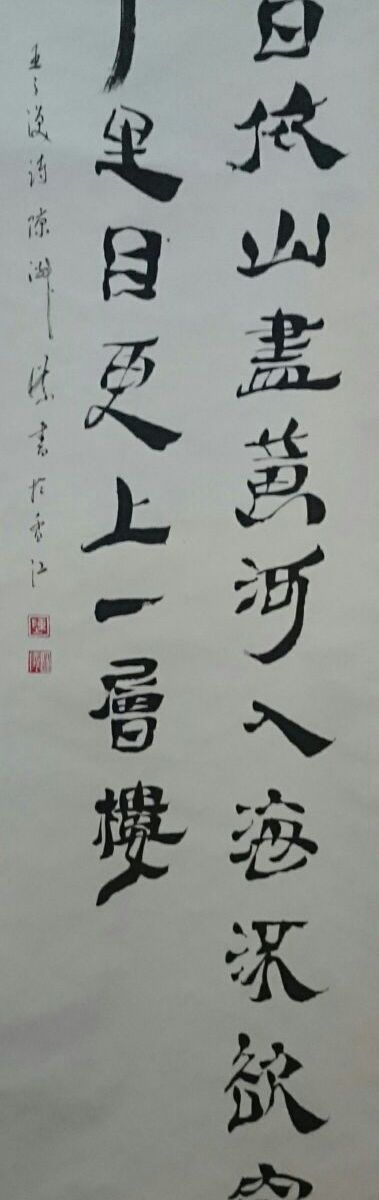 日依山盡黃河入海流欲
里目更上一層樓
王之渙詩陳書於香江